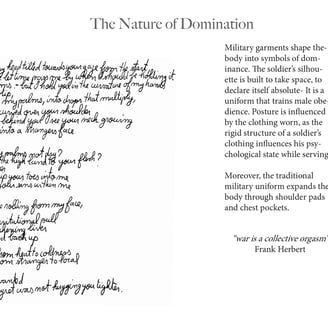 The Nature of Domination
keep tilted towards your gaze from the start
let time pass me by when I should be holding it
but I hold you in the curvature of my hands
up,
my palms, into drops that multiply,
curved over your shoulder
behind you I see your neck growing
into a strangers face
palms not dry?
the high tend to your flesh?
up your toes into me
your arms within me
rolling from my face,
gravitational pull
liver
back up
from heat to coldness
from stranger to total
wanted
regret was not hugging you tighter.
Military garments shape the-
body into symbols of dom-
inance. The soldier's silhou-
ette is built to take space, to
declare itself absolute- It is a
uniform that trains male obe-
dience. Posture is influenced
by the clothing worn, as the
rigid structure of a soldier's
clothing influences his psy-
chological state while serving
Moreover, the traditional
military uniform expands the
body through shoulder pads
and chest pockets.
"war is a collective orgasm"
Frank Herbert